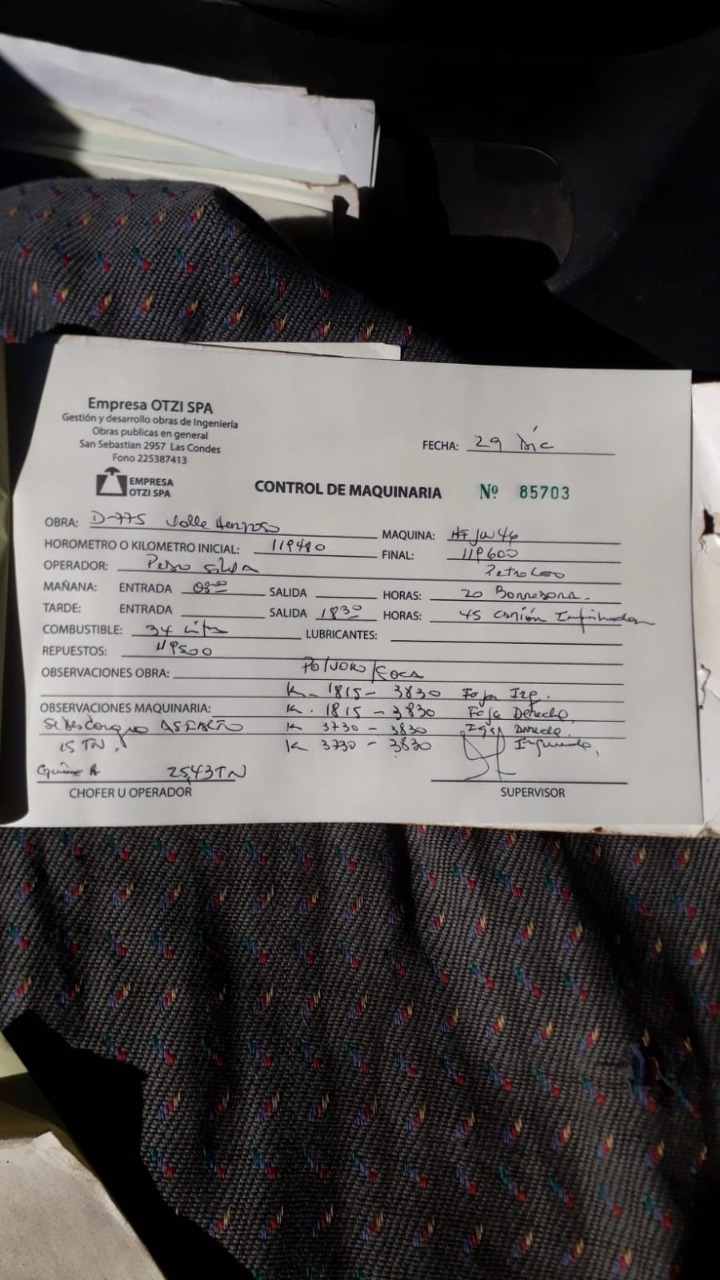 Empresa OTZI SPA
Gestión y desarrollo obras de Ingeniería
Obras publicas en general
San Sebastian 2957 Las Condes
Fono 225387413
FECHA: 29 Dic
EMPRESA
OTZI SPA
CONTROL DE MAQUINARIA Nº 85703
OBRA: D-775 Valle Hermoso MAQUINA:
HOROMETRO O KILOMETRO INICIAL: 119480 FINAL: 119600
OPERADOR: Pedro Silva Petroleo
MAÑANA: ENTRADA 08:00 SALIDA HORAS: 20
TARDE: ENTRADA SALIDA 18:30 HORAS: 45 camión
COMBUSTIBLE: 34 Lits LUBRICANTES:
REPUESTOS: 119500
OBSERVACIONES OBRA: Polvoro/Roca
K. 1815 - 3830 Faja Izq.
OBSERVACIONES MAQUINARIA: K. 1815 - 3830 Faja Derecha
Se descargo ASFALTO K 3730 - 3830
15 TN. K 3730 - 3830 Izquierda,
2543 TN
CHOFER U OPERADOR SUPERVISOR